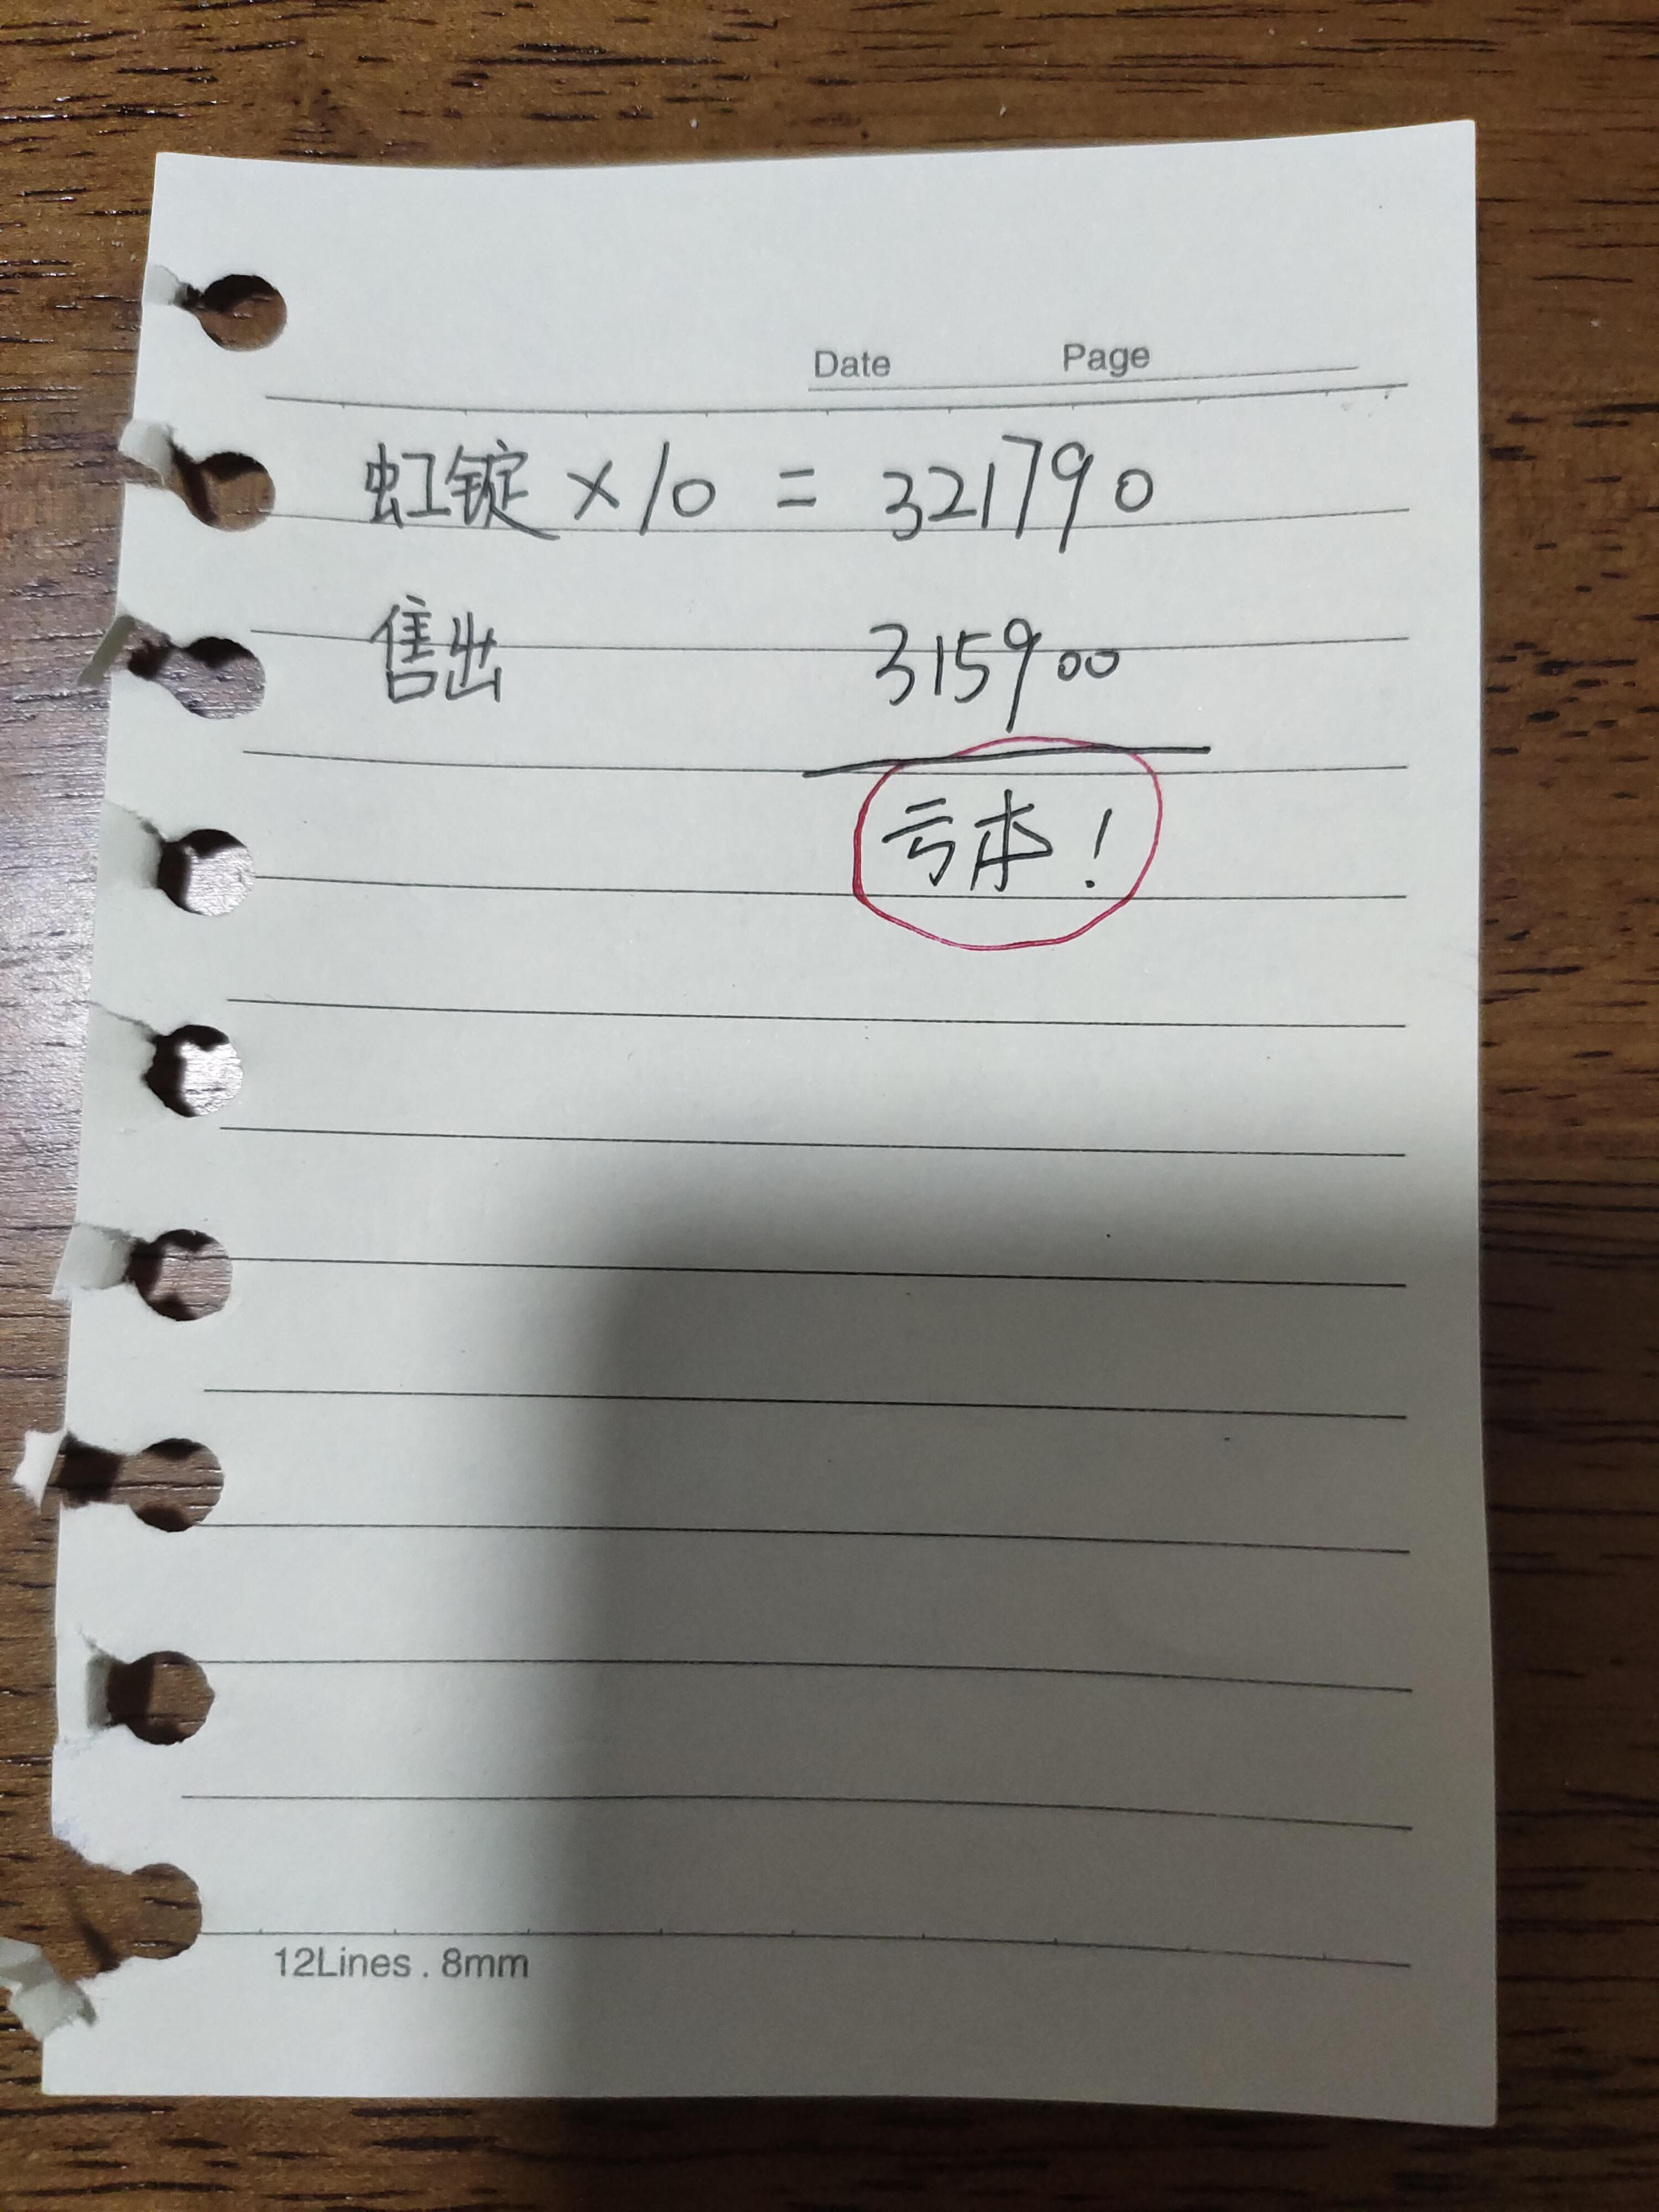 Date Page
虹锭 × 10 = 321790
售出 315900
亏本！
12Lines . 8mm